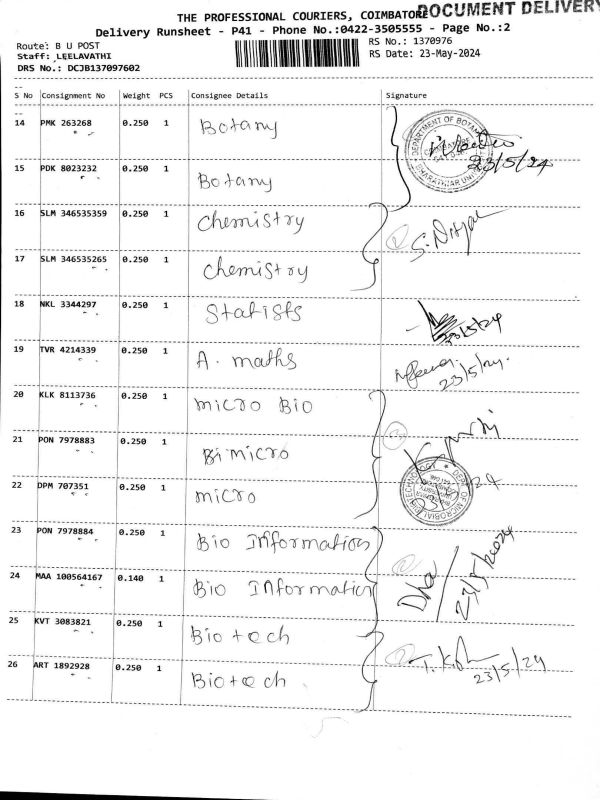 DOCUMENT DELIVERY
THE PROFESSIONAL COURIERS, COIMBATORE
Delivery Runsheet - P41 - Phone No.:0422-3505555 - Page No.:2
Route: B U POST
RS No.: 1370976
Staff: LEELAVATHI
RS Date: 23-May-2024
DRS No.: DCJB137097602
S No Consignment No Weight PCS Consignee Details Signature
14 PMK 263268 0.250 1 Botany
DEPARTMENT OF BOTANY
23/5/24
15 PDK 8023232 0.250 1 Botany
16 SLM 346535359 0.250 1 chemistry
17 SLM 346535265 0.250 1 chemistry
18 NKL 3344297 0.250 1 Statists
23/5/24
19 TVR 4214339 0.250 1 A. maths
23/5/24.
20 KLK 8113736 0.250 1 micro Bio
21 PON 7978883 0.250 1 Bi micro
22 DPM 707351 0.250 1 micro
23 PON 7978884 0.250 1 Bio Information
24 MAA 100564167 0.140 1 Bio Information
23/5/2024
25 KVT 3083821 0.250 1 Biotech
26 ART 1892928 0.250 1 Biotech
23/5/24